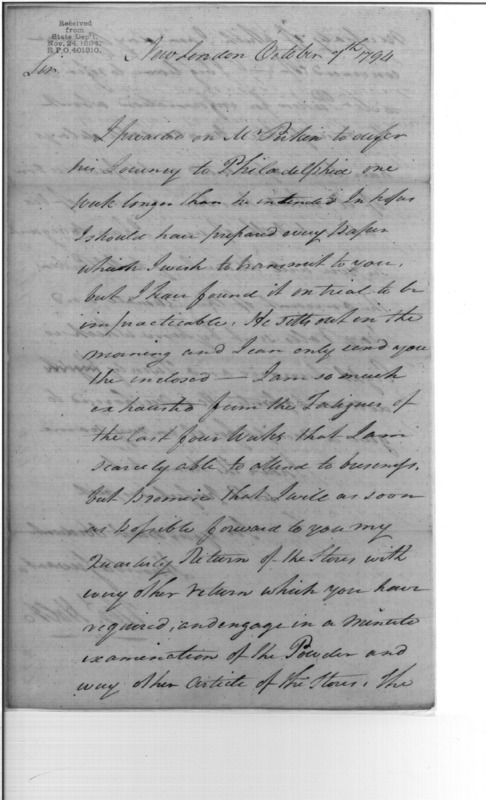 Received
from
State Dep't.
Nov. 24, 1894.
R.P.O. 401910.
New London October 7th 1794
Sir.
I prevailed on Mr to defer
his Journey to Philadelphia one
Week longer than he intended In hopes
I should have prepared every Paper
which I wish to transmit to you,
but I have found it on trial to be
impracticable, He setts out in the
morning and I can only send you
the inclosed — I am so much
exhausted from the Fatigues of
the last four Weeks that I am
scarcely able to attend to business,
but promise that I will as soon
as possible forward to you my
Quarterly Return of the Stores with
every other return which you have
required, and engage in a minute
examination of the Powder and
every other article of the Stores, The